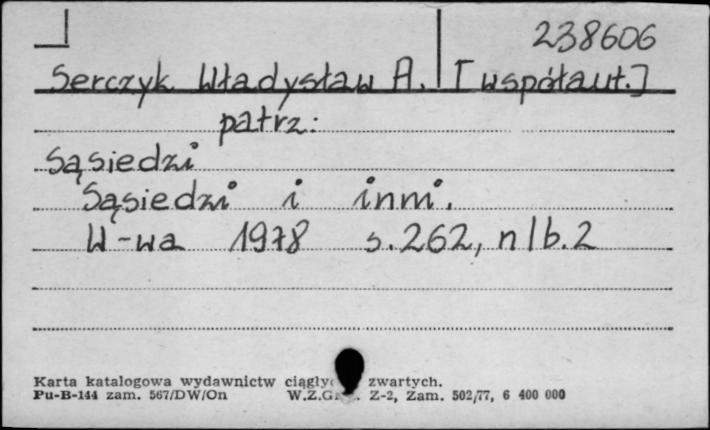 238606
Serczyk Władysław A. [współaut.]
patrz:
Sąsiedzi
Sąsiedzi i inni.
W-wa 1978 s.262, nlb.2
Karta katalogowa wydawnictw zwartych.
Pu-B-144 zam. 567/DW/On Z-2, Zam. 502/77, 6 400 000